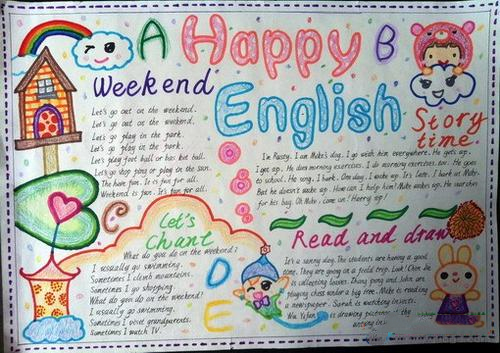 A Happy B
English
Weekend
Let's go out on the weekend.
Let's go out on the weekend.
Let's go play in the park.
Let's go play in the park.
Let's play foot ball or bas ket ball.
Let's go stop ping or play in the sun.
The have fun. It is fun for all.
Weekend is fun. It's fun for all.
Story
time.
I'm Rusty. I am Mike's dog. I go with him everywhere. He gets up.
I get up. He does morning exercises. I do morning exercises too. He goes
to school. He sings. I bark. One day, I wake up. It's late. I bark at Mike.
But he doesn't wake up. How can I help him? Mike wakes up. He searches
for his bag. Oh Mike, come on! Hurry up!
C
Let's
Chant
What do you do on the weekend?
I usually go swimming.
Sometimes I climb mountains.
Sometimes I go shopping.
What do you do on the weekend?
I usually go swimming.
Sometimes I visit grandparents.
Sometimes I watch TV.
D
E
Read and draw
It's a sunny day. The students are having a good
time. They are on a field trip. Look! Chen Jie
is collecting leaves. Zhang Peng and John are
playing chess under a big tree. Mike is reading
a newspaper. Sarah is watching insects.
Wu Yifan is drawing pictures